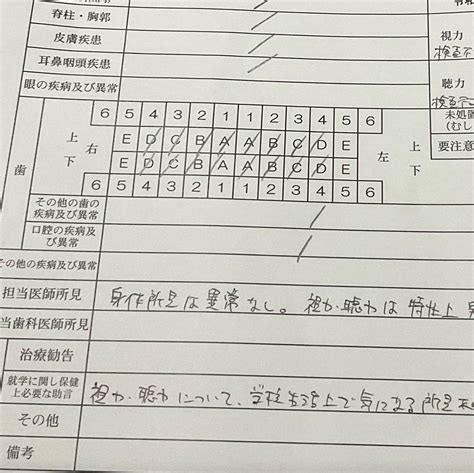 脊柱・胸郭
皮膚疾患
視力
検査不
耳鼻咽頭疾患
眼の疾病及び異常
聴力
検査不
6 5 4 3 2 1 1 2 3 4 5 6
未処置
(むし
上 右 E D C B A A B C D E 左 上
要注意
下 E D C B A A B C D E 下
歯
6 5 4 3 2 1 1 2 3 4 5 6
その他の歯の
疾病及び異常
口腔の疾病及
び異常
その他の疾病及び異常
担当医師所見 身体所見は異常なし。視力・聴力は特性上
当歯科医師所見
治療勧告
就学に関し保健
上必要な助言 視力・聴力について、学校生活上で気になる所見
その他
備考